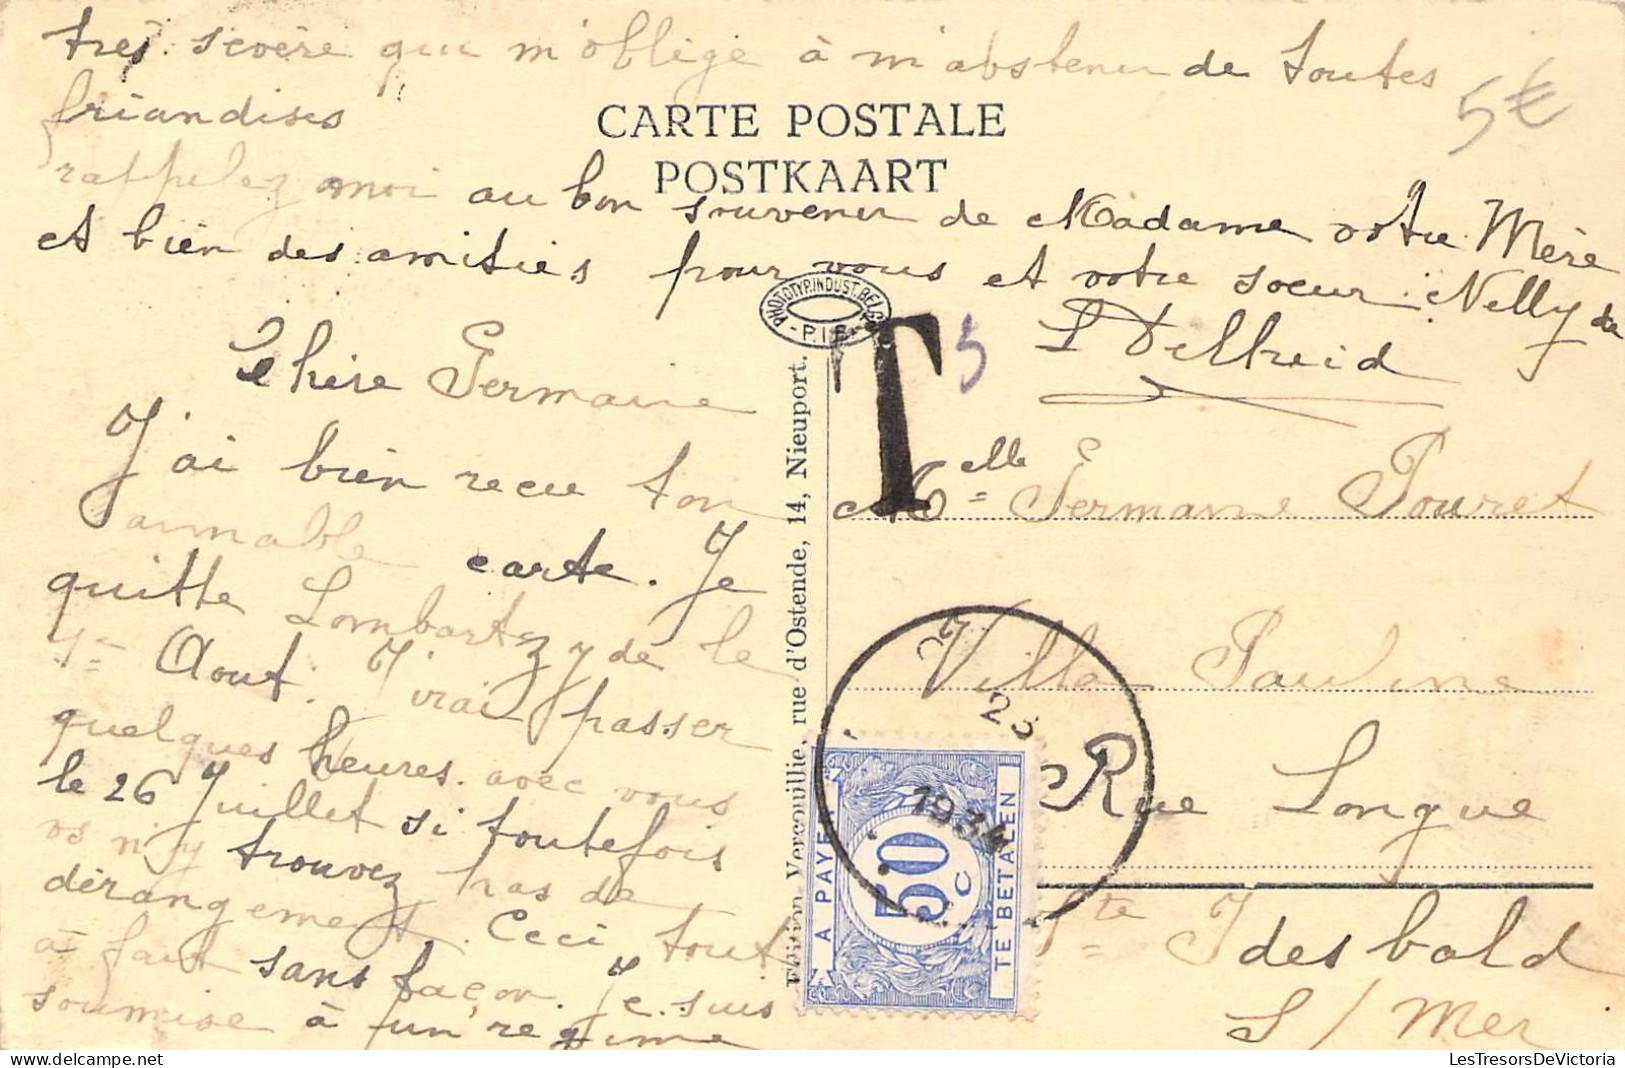 très sevère qui m'oblige à m'abstenir de toutes
friandises
5€
CARTE POSTALE
POSTKAART
rappelez moi au bon souvenir de Madame votre Mère
et bien des amitiés pour vous et votre soeur Nelly de
L Delheid
PHOTOTYP. INDUST. BELG
- P.I.B.
T 5
Chère Germaine
J'ai bien reçu ton
aimable carte. Je
quitte Lombartzyde le
1r Aout. J'irai passer
quelques heures avec vous
le 26 Juillet si toutefois
vs n'y trouvez pas de
dérangement. Ceci tout
à fait sans façon. Je suis
soumise à un régime
Edition Vercouillie, rue d'Ostende, 14, Nieuport.
Melle Germaine Pouret
Villa Pauline
Rue Longue
Ste Idesbald
S/Mer
23
1934
A PAYER
50
C
TE BETALEN
LesTresorsDeVictoria